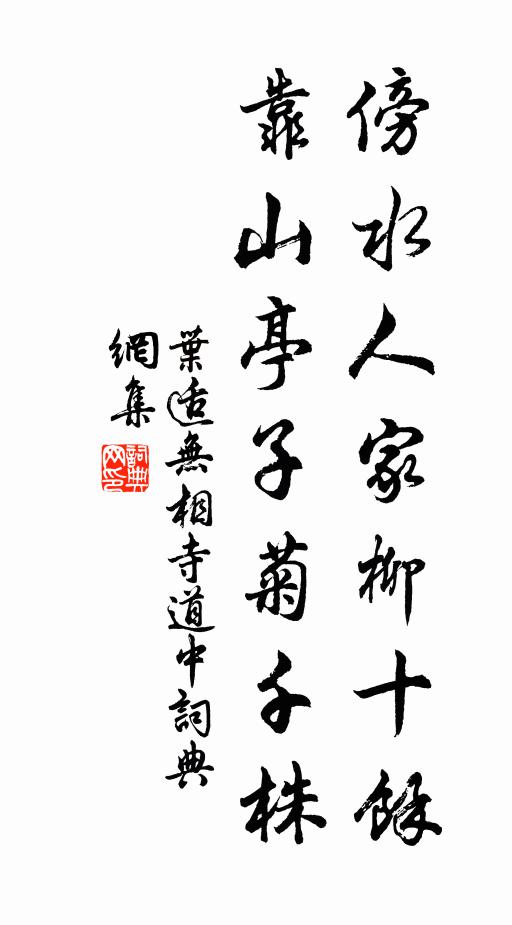 傍水人家柳十餘
靠山亭子菊千株
葉适無相寺道中詞典
網集
詞典
网印